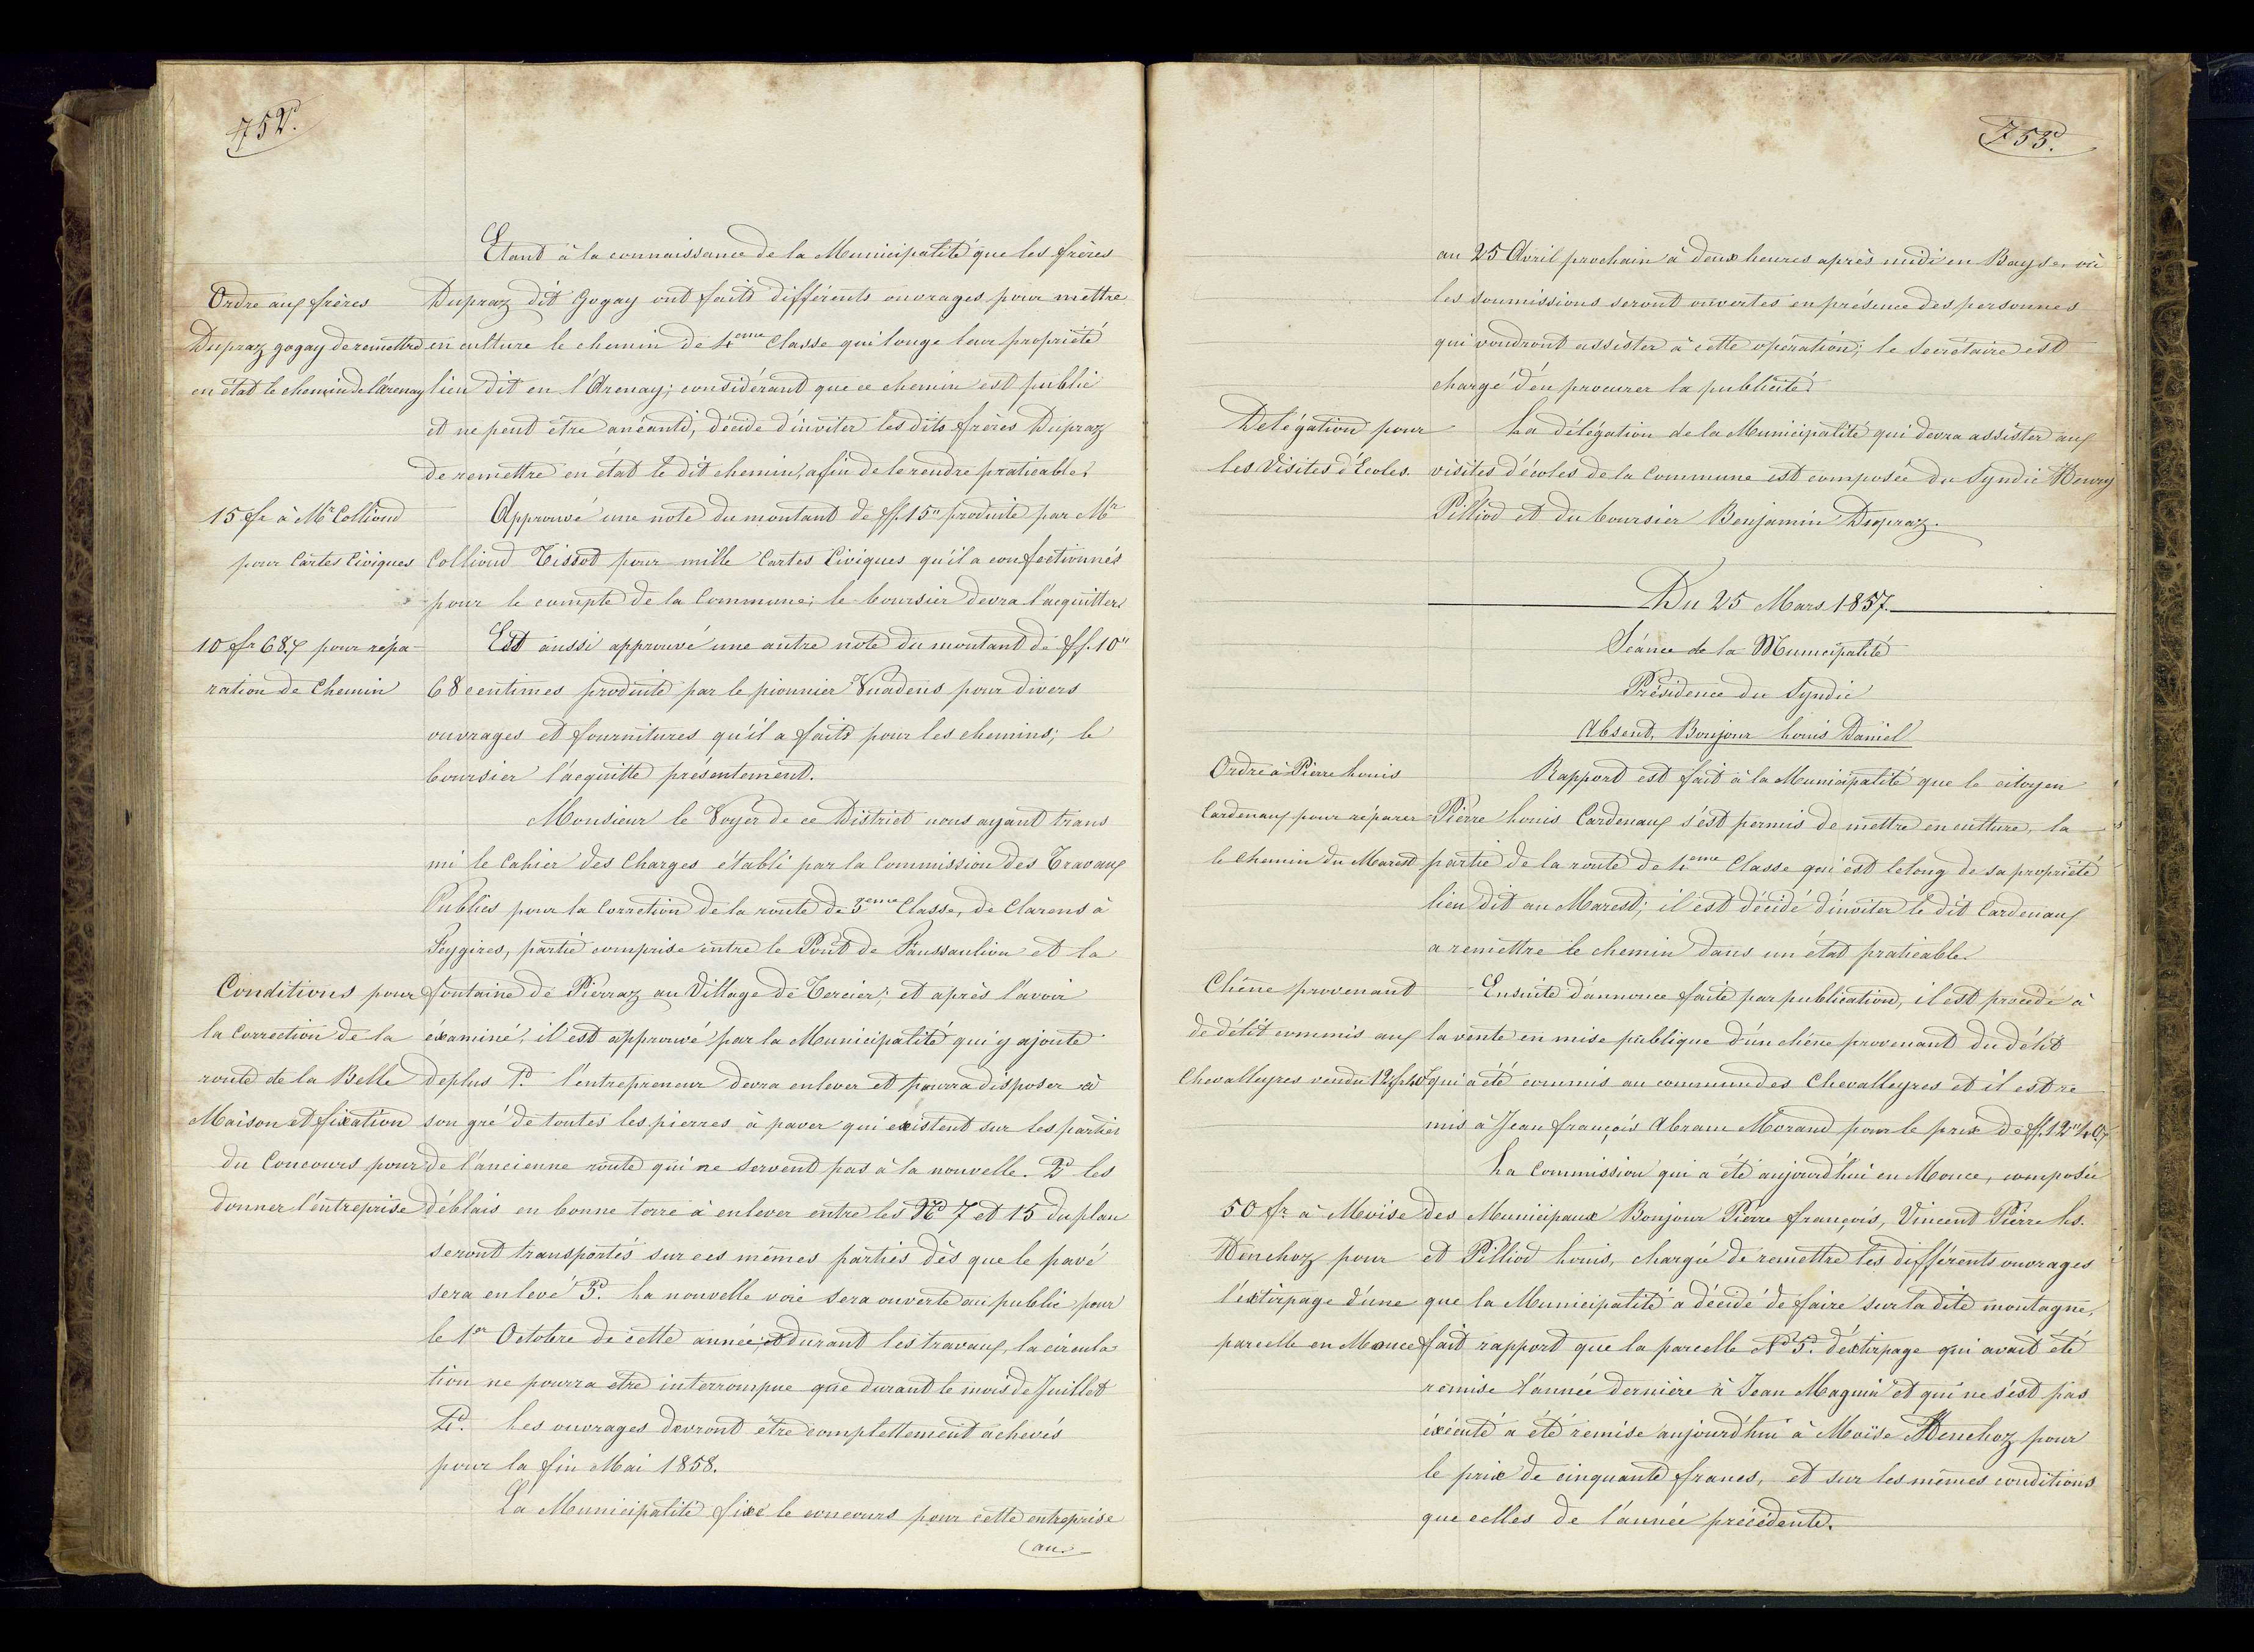 752.
Etant à la connaissance de la Municipalité que les frères
Ordre aux frères
Dupraz dit Gogay ont faits différents ouvrages pour mettre
Dupraz gogay de remettre
en culture le chemin de 4eme Classe qui longe leur propriété
en état le chemin de l'Arenay
lieu dit en l'Arenay; considérant que ce chemin est public
et ne peut être anéanti, décide d'inviter les dits frères Dupraz
de remettre en état le dit chemin, afin de le rendre praticable.
15 fr à Mr Collioud
Approuvé une note du montant de ff. 15" produite par Mr
pour Cartes Civiques
Collioud Tissot pour mille Cartes Civiques qu'il a confectionnés
pour le compte de la Commune; le boursier devra l'acquitter.
10 fr 68. pour répa-
Est aussi approuvé une autre note du montant de ff. 10"
ration de Chemin
68 centimes produite par le pionnier Vuadens pour divers
ouvrages et fournitures qu'il a faits pour les chemins; le
boursier l'acquitte présentement.
Monsieur le Voyer de ce District nous ayant trans
mi le Cahier des Charges établi par la Commission des Travaux
Publics pour la Corretion de la route de 3eme Classe, de Clarens à
Feygires, partie comprise entre le Pont de et la
Conditions pour
fontaine de Pierraz au Village de Tercier; et après l'avoir
la Correction de la
éxaminé, il est approuvé par la Municipalité qui y ajoute
route de la Belle
deplus 1o. l'entrepreneur devra enlever et pourra disposer à
Maison et fixation
son gré de toutes les pierres à paver qui existent sur les parties
du Concours pour
de l'ancienne route qui ne servent pas à la nouvelle. 2o les
donner l'entreprise
déblais en bonne terre à enlever entre les No 7 et 15 du plan
seront transportés sur ces mêmes parties dès que le pavé
sera enlevé 3o. La nouvelle voie sera ouverte au public pour
le 1er Octobre de cette année, et durant les travaux, la circula
tion ne pourra etre interrompue que durant le mois de Juillet
4o. Les ouvrages devront être complettement achevés
pour la fin Mai 1858.
La Municipalité fixe le concours pour cette entreprise
au
753.
au 25 Avril prochain à deux heures après midi en Bayse, où
les soumissions seront ouvertes en présence des personnes
qui voudront assister à cette opération; le secrétaire est
chargé d'en procurer la publicité.
Délégation pour
La délégation de la Municipalité qui devra assister aux
les Visites d'Ecoles.
visites d'écoles de la Commune est composée du Syndic Henry
Pilliod et du boursier Benjamin Dupraz.
Du 25 Mars 1857.
Séance de la Municipalité
Présidence du Syndic
Absent, Bonjour Louis Daniel
Ordre à Pierre Louis
Rapport est fait à la Municipalité que le citoyen
Cardenaux pour réparer
Pierre Louis Cardenaux s'est permis de mettre en culture, la
le Chemin du Marest
partie de la route de 4eme Classe qui est le long de sa propriété
lieu dit au Marest; il est décidé d'inviter le dit Cardenaux
a remettre le chemin dans un état praticable.
Chêne provenant
Ensuite d'annonce faite par publication, il est procédé à
de délit commis aux
la vente en mise publique d'un chêne provenant du délit
Chevalleyres vendu 12 f. 40
qui a été commis au commun des Chevalleyres et il est re
mis à Jean françois Abram Morand pour le prix de ff. 12" 40
La Commission qui a été aujourd'hui en Mouce, composée
50 fr. à Moise
des Municipaux Bonjour Pierre françois, Vincent Pierre Ls.
Henchoz pour
et Pilliod Louis, chargée de remettre les différents ouvrages
l'extirpage d'une
que la Municipalité a décidé de faire sur la dite montagne,
parcelle en Mouce
fait rapport que la parcelle No 5. d'extirpage qui avait été
remise l'année dernière à Jean Magnin et qui ne s'est pas
éxécuté a été remise aujourd'hui à Moïse Henchoz pour
le prix de cinquante francs, et sur les mêmes conditions
que celles de l'année précédente.